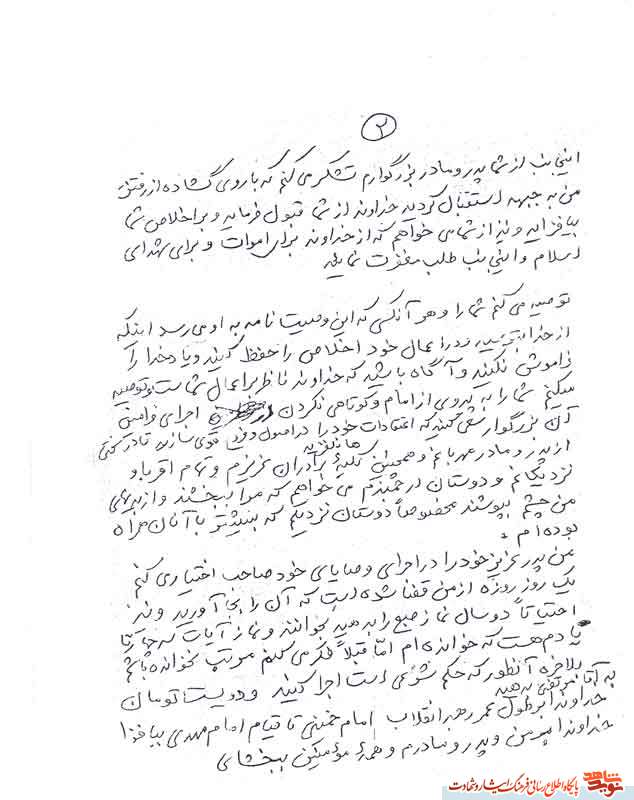 ۲
اینجانب از شما پدر و مادر بزرگوارم تشکر می کنم که با روی گشاده از رفتن
من به جبهه استقبال کردید خداوند از شما قبول فرماید و بر اخلاص شما
بیافزاید و نیز از شما می خواهم که از خداوند برای اموات و برای شهدای
اسلام و اینجانب طلب مغفرت نمائید
توصیه می کنم شما را و هر آنکسی که این وصیت نامه به او می رسد اینکه
از خدا بترسید و در اعمال خود اخلاص را حفظ کنید و یاد خدا را
فراموش نکنید و آگاه باشید که خداوند ناظر بر اعمال شماست و توصیه
میکنم شما را به پیروی از امام و کوتاهی نکردن در اجرای فرامین
آن بزرگوار سعی کنید که اعتقادات خود را در اصول و فروع قوی سازید
از پدر و مادر مهربانم و همچنین کلیهٔ برادران عزیزم و تمام اقربا و
نزدیکانم و دوستان ارجمندم می خواهم که مرا ببخشند و از بدیهای
من چشم بپوشند مخصوصاً دوستان نزدیکم که بیشتر با آنان همراه
بوده ام .
من پدر عزیز خود را در اجرای وصایای خود صاحب اختیار می کنم
یک روز روزه از من قضا شده است که آن را بجا آورید و نیز
احتیاتاً دو سال نماز صبح را بدهید بخوانند و نماز آیات که چند تا
یادم هست که خوانده ام اما قبلاً فکر می کنم مرتب نخوانده باشم
بلاخره آنطور که حکم شرعی است اجرا کنید و دویست تومان
به آقا مرتضی بدهید
خداوندا بر طول عمر رهبر انقلاب امام خمینی تا قیام امام مهدی بیافزا
خداوندا بر من و پدر و مادرم و همهٔ مؤمنین ببخشای
نوید شاهد
پایگاه اطلاع رسانی فرهنگ ایثار و شهادت